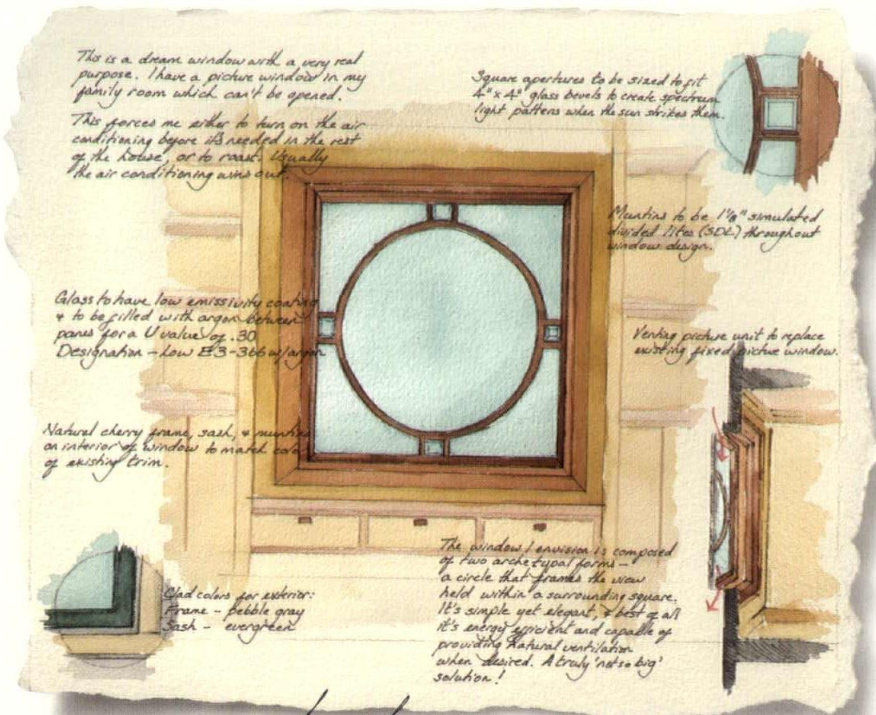 This is a dream window with a very real
purpose. I have a picture window in my
family room which can't be opened.
This forces me either to turn on the air
conditioning before it's needed in the rest
of the house, or to roast. Usually
the air conditioning wins out.
Square apertures to be sized to fit
4" x 4" glass bevels to create spectrum
light patterns when the sun strikes them.
Muntins to be 1 1/8" simulated
divided lites (SDL) throughout
window design.
Glass to have low emissivity coating
& to be filled with argon between
panes for a U value of .30
Designation - Low E3-366 w/argon
Venting picture unit to replace
existing fixed picture window.
Natural cherry frame, sash, & muntins
on interior of window to match color
of existing trim.
Clad colors for exterior:
Frame - pebble gray
Sash - evergreen
The window I envision is composed
of two archetypal forms -
a circle that frames the view
held within a surrounding square.
It's simple yet elegant, & best of all
it's energy efficient and capable of
providing natural ventilation
when desired. A truly 'not so big'
solution!